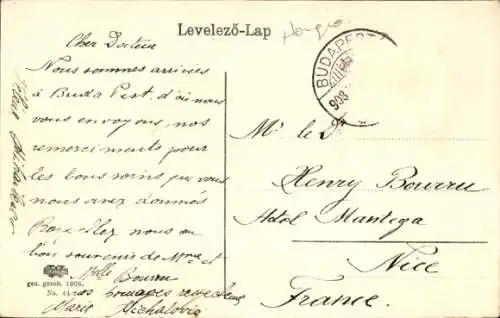 Levelező-Lap
BUDAPEST
908
Cher Docteur
Nous sommes arrivées
à Buda Pest. d'où nous
vous envoyons, nos
remerciments pour
les bons soins que vous
nous avez donnés
nous au
bon souvenir de Mme et
Mlle Bourru
nos hommages respectueux
Marie Michalovic
ges. gesch. 1906.
No.
Mr le Dr
Henry Bourru
Hotel Mantega
Nice
France.